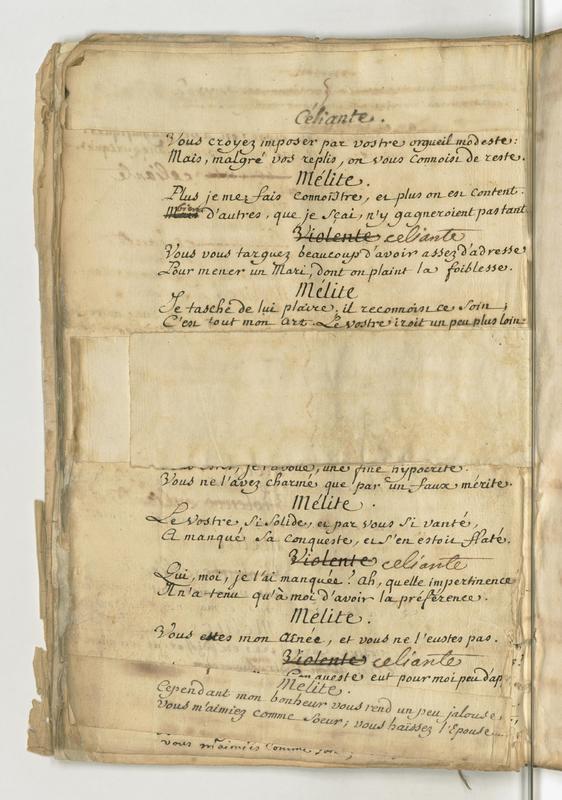 Céliante.
Vous croyez imposer par vostre orgueil modeste:
Mais, malgré vos replis, on vous connoist de reste.
Mélite.
Plus je me fais connoistre, et plus on est content.
d'autres, que je sçai, n'y gagneroient pas tant
Violente celiante
Vous vous targuez beaucoup d'avoir assez d'adresse
Pour mener un Mari, dont on plaint la foiblesse.
Mélite
Je tasche de lui plaire, il reconnoist ce soin;
C'est tout mon art. Le vostre iroit un peu plus loin
je l'avoue, une fine hypocrite.
Vous ne l'avez charmé que par un faux mérite.
Mélite.
Le vostre si solide, et par vous si vanté,
A manqué sa conqueste, et s'en estoit flaté.
Violente celiante
Qui, moi, je l'ai manquée? Ah, quelle impertinence
Il n'a tenu qu'à moi d'avoir la préférence.
Mélite.
Vous estes mon aînée, et vous ne l'eustes pas.
Violente celiante
queste eut pour moi peu d'ap
Mélite.
Cependant mon bonheur vous rend un peu jalouse.
Vous m'aimiez comme Soeur; vous haïssez l'Epouse
vous m'aimiés comme